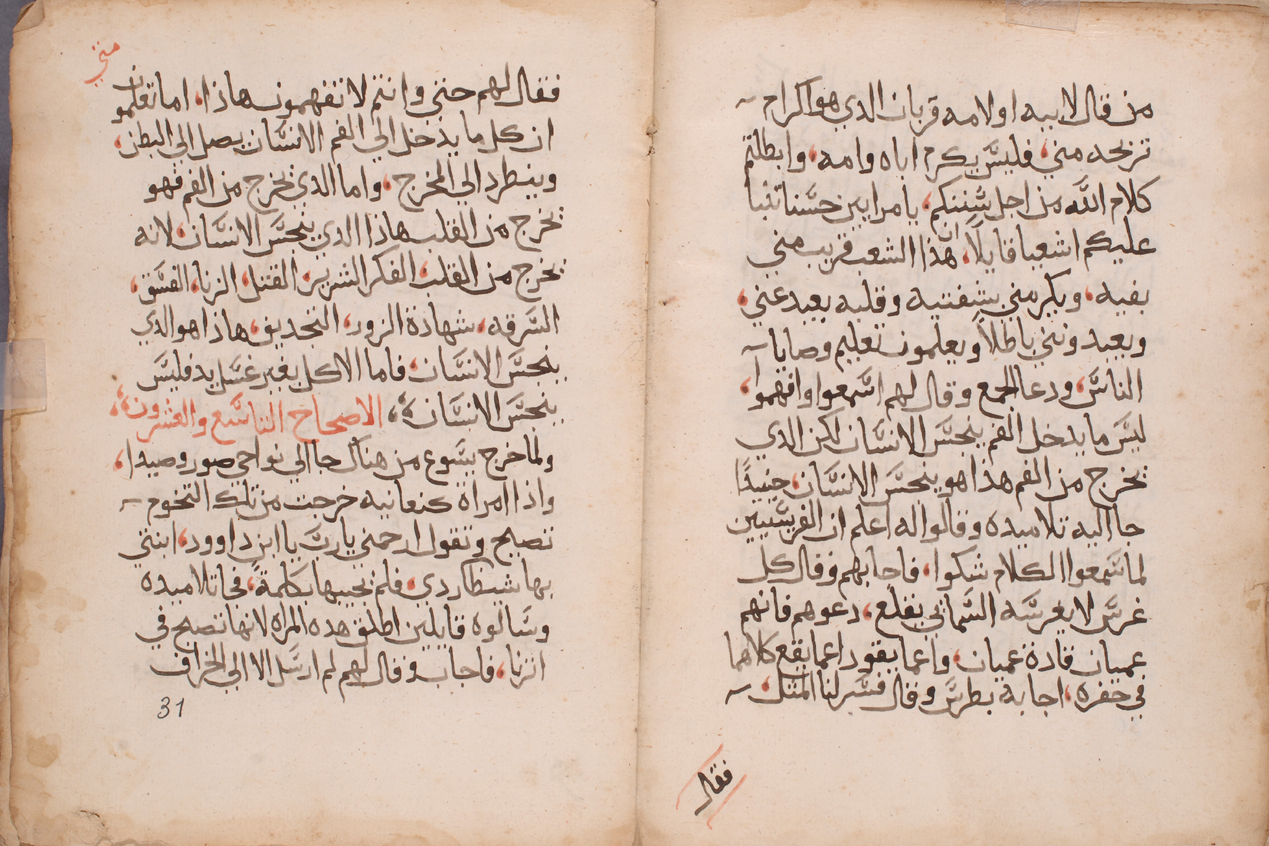 من قال لابيه او لامه قربان الدي هو اكرام
تربحه مني، فليس يكرم اباه وامه، وابطلتم
كلام الله من اجل سننكم، يا مرايين حسنا تنبا
عليكم اشعيا قايلاً، ان هذا الشعب قريب مني
بفيه، ويكرمني بشفتيه وقلبه بعيد عني،
ويعبدونني باطلاً ويعلمون تعليم وصايا
الناس، ودعا الجمع وقال لهم اسمعوا وافهموا،
ليس ما يدخل الفم ينجس الانسان لكن الدي
يخرج من الفم هدا هو ينجس الانسان، حينيدًا
جا اليه تلاميده وقالوا له اعلم ان الفريسيين
لما سمعوا الكلام شكوا، فاجابهم وقال كل
غرس لا يغرسه ابي السماني يقلع، دعوهم فانهم
عميان قادة عميان، واعما يقود اعما يقع كلاهما
في حفره، اجابه بطرس وقال فسر لنا المتل،
فقال
متي
فقال لهم حتي وانتم لا تفهمون هاذا، اما تعلمون
ان كل ما يدخل الي الفم الانسان يصل الي البطن،
وينطرد الي المخرج، واما الذي يخرج من الفم فهو
يخرج من القلب هاذا الدي ينجس الانسان، لانه
يخرج من القلب، الفكر الشرير، القتل، الزنا، الفسق،
السرقه، شهادة الزور، التجديف، هاذا هو الدي
ينجس الانسان، فاما الاكل بغير غسل يد فليس
ينجس الانسان، الاصحاح التاسع والعشرون،
ولما خرج يسوع من هناك جا الي نواحي صور وصيدا،
واذا امراه كنعانيه خرجت من تلك التخوم
تصيح وتقول ارحمني يا رب يا ابن داوود، ابنتي
بها شيطان ردي، فلم يجيبها بكلمة، فجا تلاميده
وسالوه قايلين اطلق هده المراه لانها تصيح في
اترنا، فاجاب وقال لهم لم ارسل الا الي الخراف
31